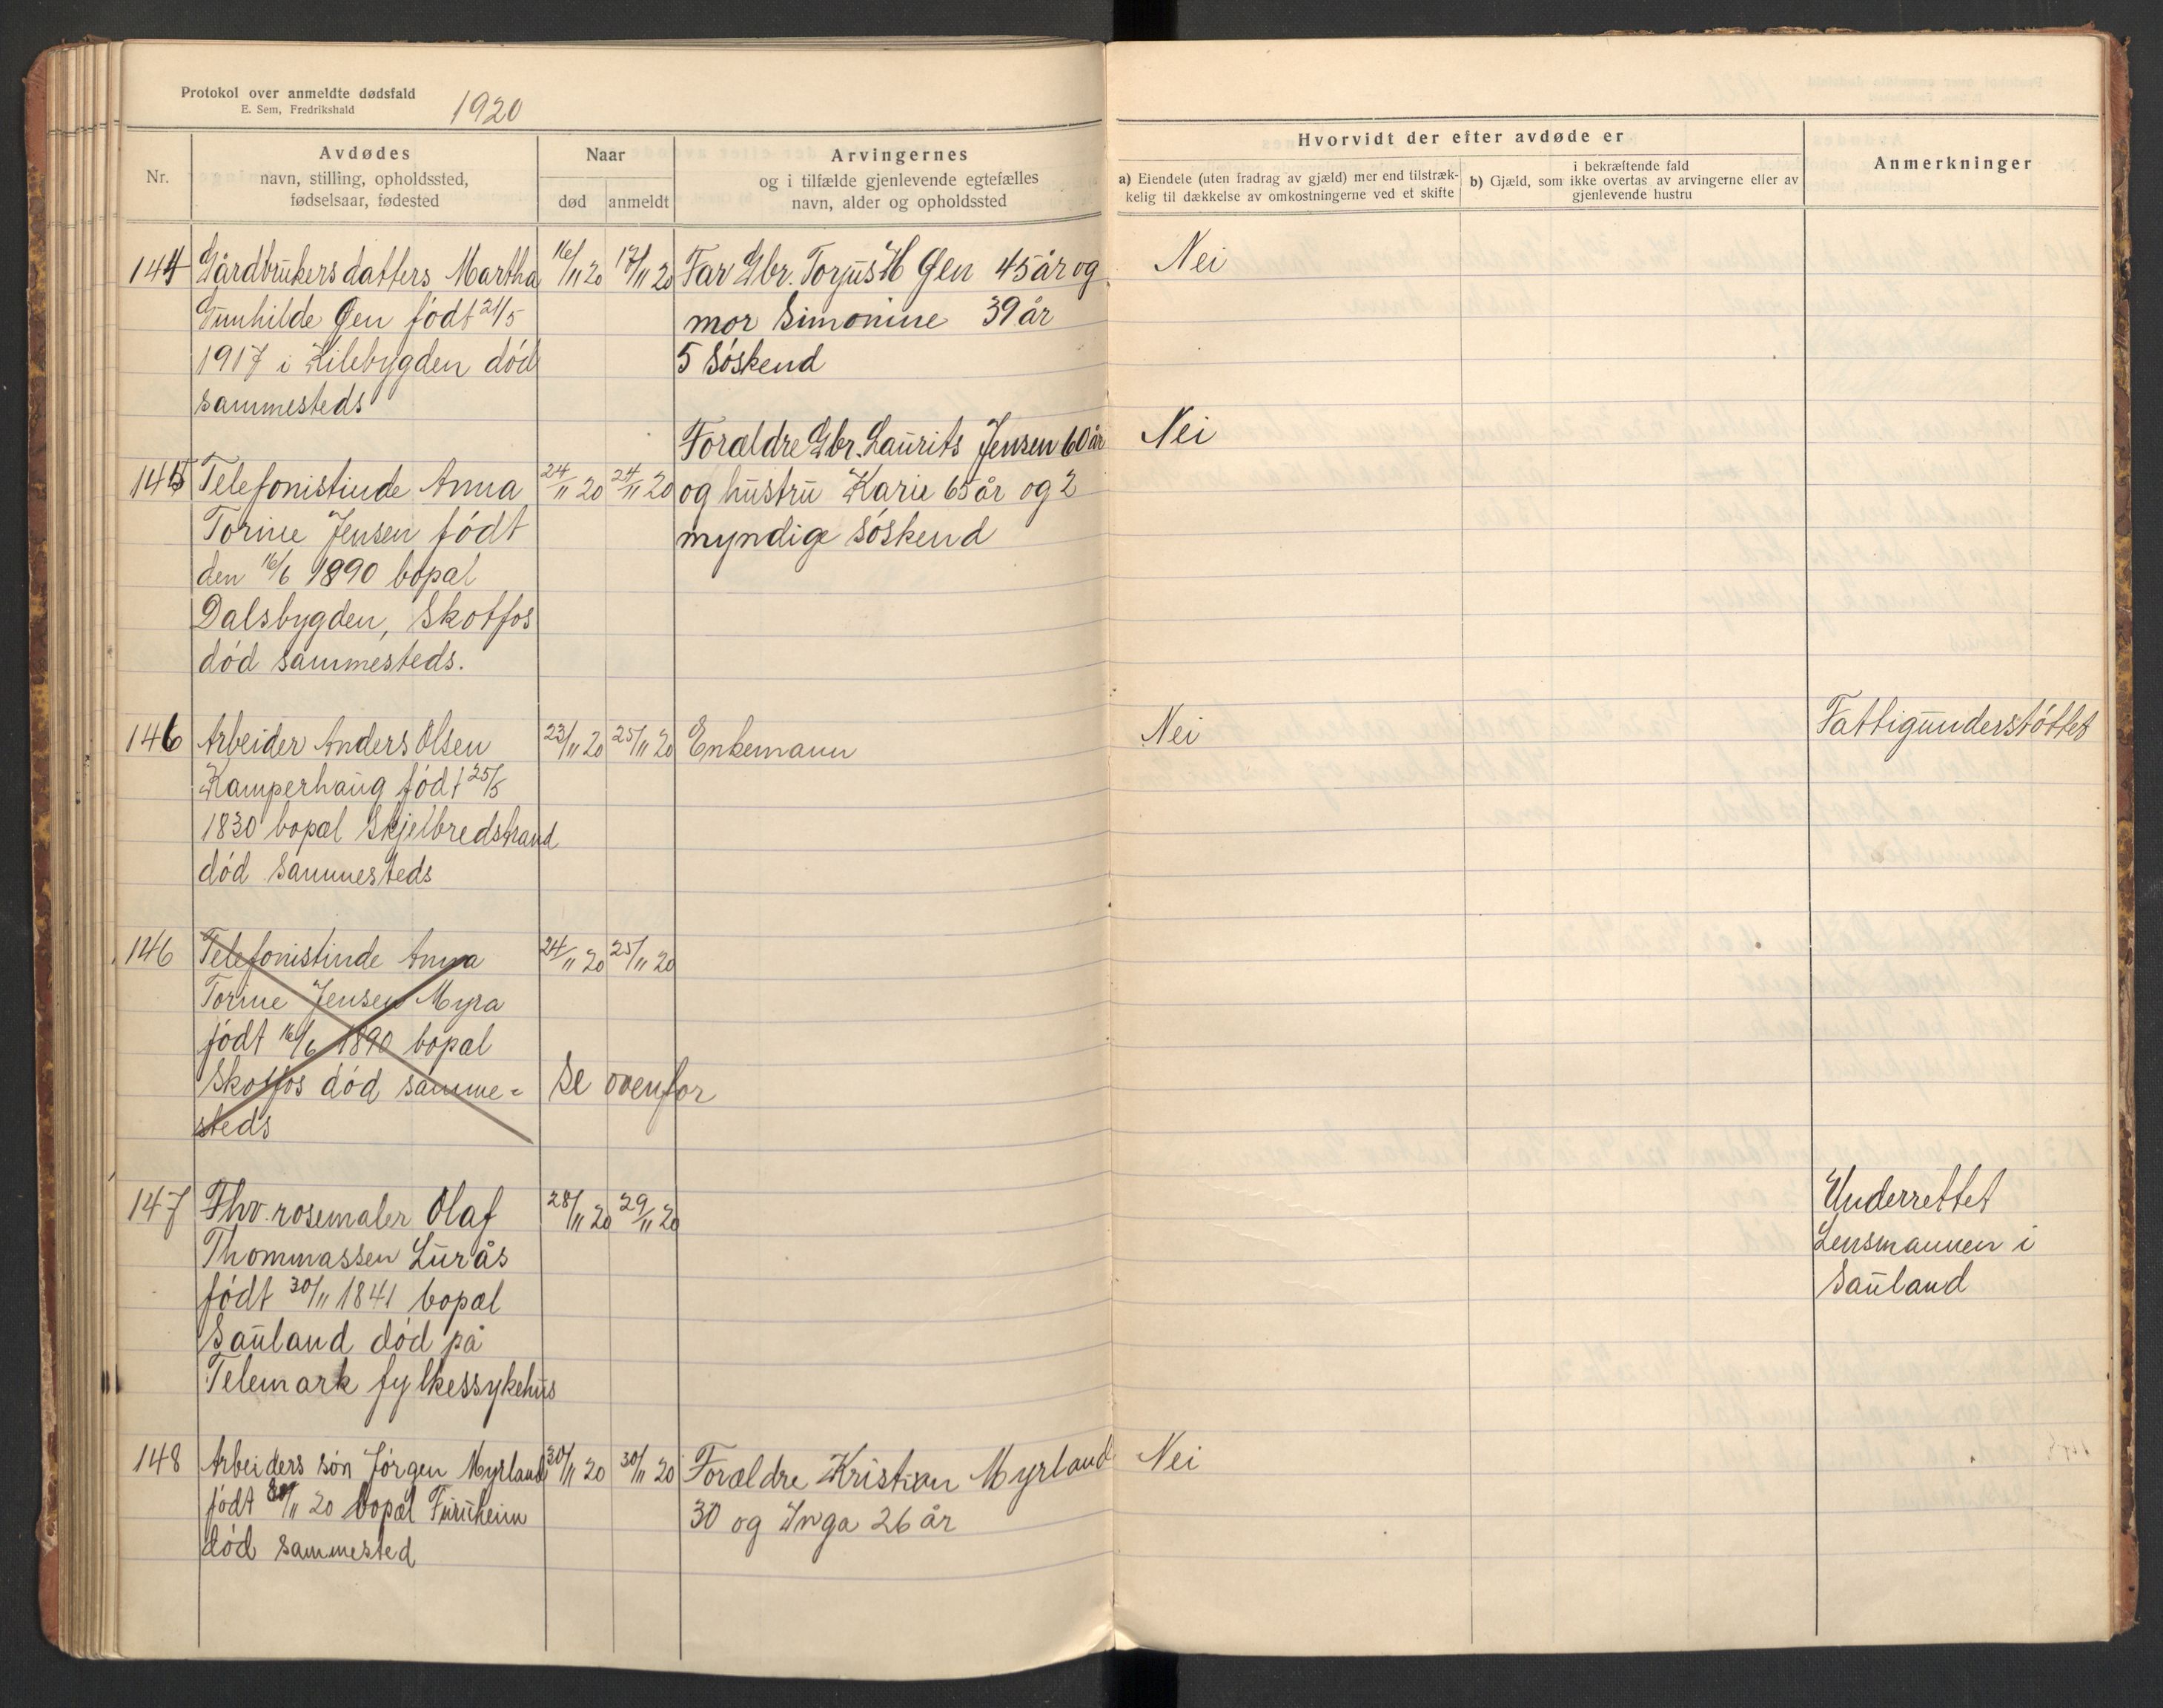 Protokol over anmeldte dødsfald
E. Sem, Fredrikshald
1920
Nr.
Avdødes
navn, stilling, opholdssted,
fødselsaar, fødested
Naar
død
anmeldt
Arvingernes
og i tilfælde gjenlevende egtefælles
navn, alder og opholdssted
Hvorvidt der efter avdøde er
a) Eiendele (uten fradrag av gjæld) mer end tilstræk-
kelig til dækkelse av omkostningerne ved et skifte
i bekræftende fald
b) Gjæld, som ikke overtas av arvingerne eller av
gjenlevende hustru
Anmerkninger
144 Gårdbrukers datters Martha 16/11 20 17/11 20 Far Gbr. Torjus H Gen 45 år og Nei
Gunhilde Gen født 21/5 mor Simonine 39 år
1917 i Kilebygden død 5 Søskend
sammesteds
Forældre Gbr. Laurits Jensen 60 år Nei
145 Telefonistinde Anna 24/11 20 24/11 20 og hustru Karie 65 år og 2
Torine Jensen født myndige søskend
den 16/6 1890 bopæl
Dalsbygden, Skotfos
død sammesteds.
146 Arbeider Anders Olsen 23/11 20 25/11 20 Enkemann Nei Fattigunderstøttet
Kamperhaug født 25/5
1830 bopæl Skjelbredstrand
død sammesteds
146 Telefonistinde Anna 24/11 20 25/11 20
Torine Jensen Myra
født 16/6 1890 bopæl
Skotfos død samme= Se ovenfor
steds
147 Fhv. rosemaler Olaf 28/11 20 29/11 20 Underrettet
Thommassen Lurås Lensmannen i
født 30/11 1841 bopæl Sauland
Sauland død på
Telemark fylkessykehus
148 Arbeiders søn Jørgen Myrland 30/11 20 30/11 20 Forældre Kristian Myrland Nei
født 30/11 20 bopæl Furuheim 30 og Inga 26 år
død sammested